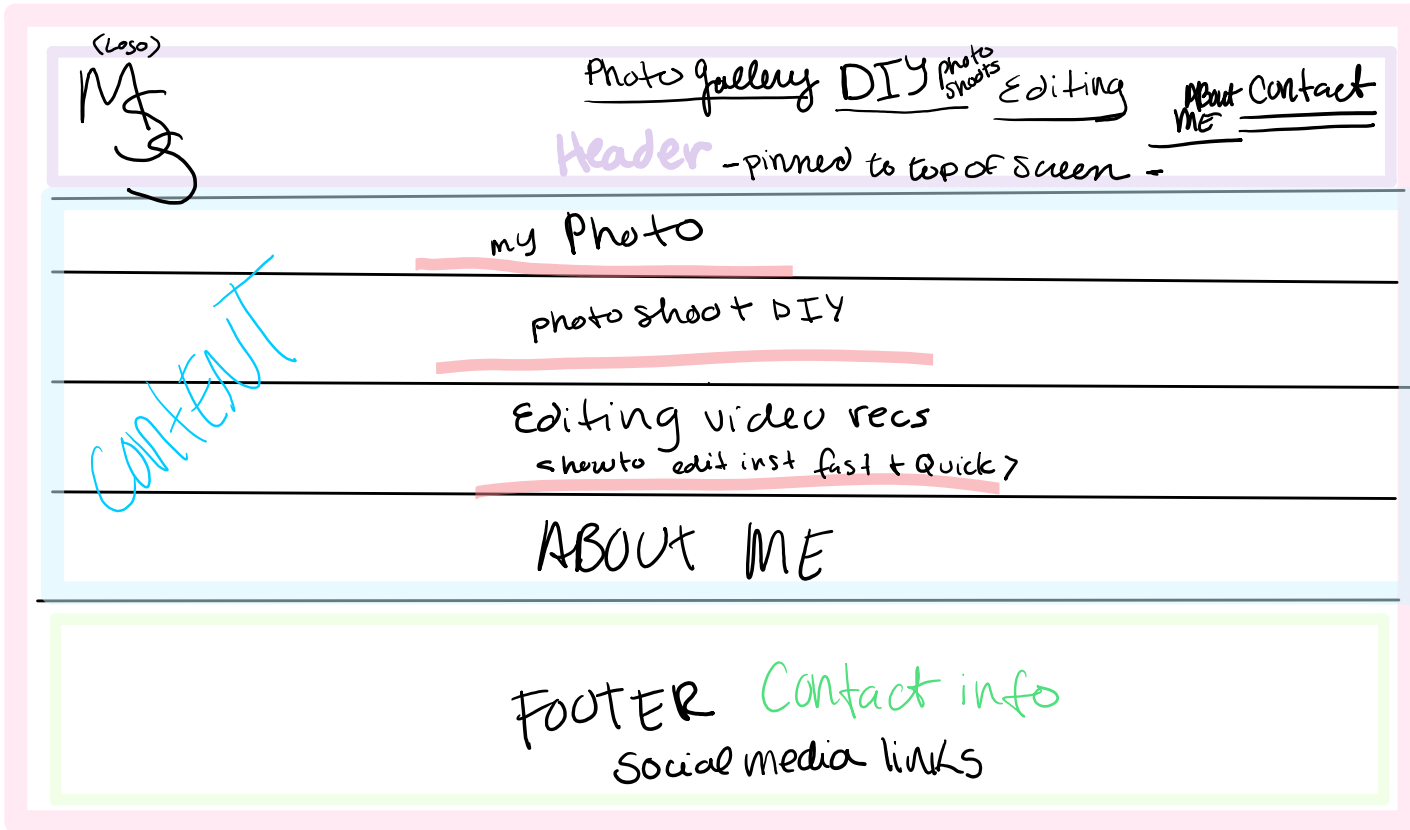 (Logo)
MSS
Photo gallery DIY photo shoots Editing About ME Contact
Header - pinned to top of screen -
my Photo
photoshoot DIY
Editing video recs
<how to edit inst fast + Quick>
CONTENT
ABOUT ME
FOOTER Contact info
social media links